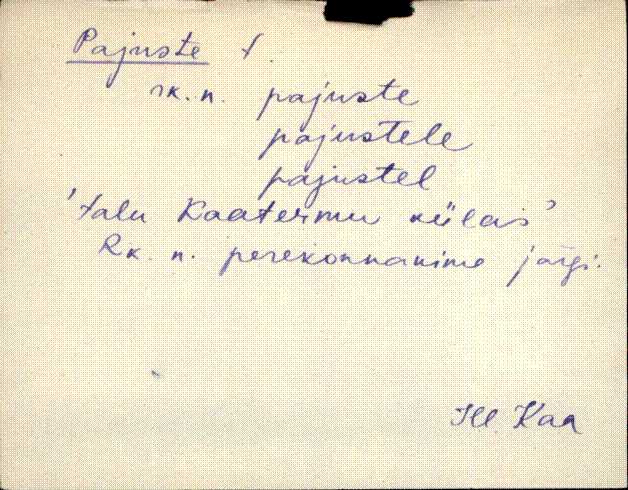 Pajuste t.
rk. n. pajuste
pajustele
pajustel
'talu Kaatermu külas'
Rk. n. perekonnanime järgi.
Kaa